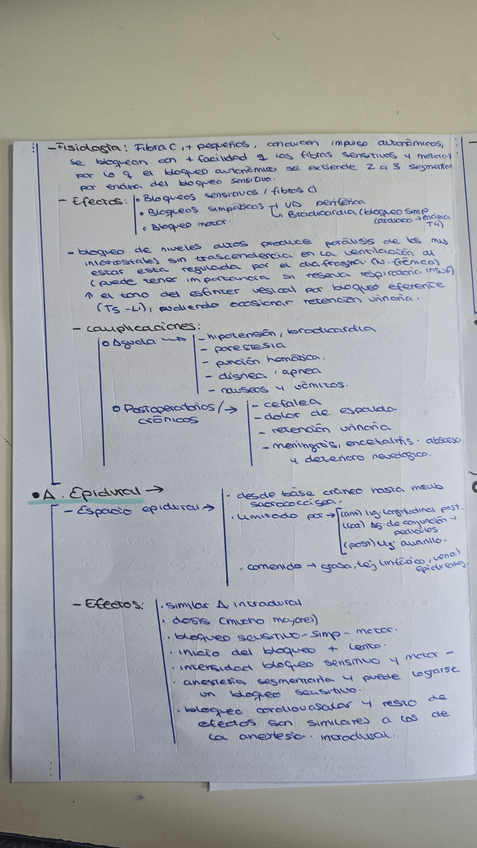 - Fisiología: Fibra C, + pequeños, conducen impulso autonómicos,
se bloquean con + facilidad q las fibras sensitivas y motoras
por lo q el bloqueo autonómico se extiende 2 a 3 segmentos
por encima del bloqueo sensitivo.
- Efectos: • Bloqueos sensitivos (fibras C)
• Bloqueos simpáticos → VD periférica
↳ Bradicardia (bloqueo simp
cardíaco → encima
T4)
• Bloqueo motor.
- bloqueo de niveles altos produce parálisis de los mus
intercostales sin trascendencia en la ventilación al
estar esta regulada por el diafragma (N. frénico)
(puede tener importancia si reserva respiratoria insuf)
↑ el tono del esfínter vesical por bloqueo eferente
(T5-L1), pudiendo ocasionar retención urinaria.
- complicaciones:
o Aguda → - hipotensión, bradicardia
- parestesia
- punción hemática.
- disnea, apnea
- náuseas y vómitos.
o Postoperatorios/→ - cefalea
crónicos - dolor de espalda
- retención urinaria
- meningitis, encefalitis, absceso
y deterioro neurológico.
• A. Epidural →
- Espacio epidural → · desde base cráneo hasta memb
sacrococcígea.
· Limitado por → (ant) lig. longitudinal post.
(lat) Ag. de conjunción y
pedículos
(post) lig. amarillo.
· contenido → grasa, tej linfático, venas
epidurales.
- Efectos: · similar A intradural
· dosis (mucho mayores)
· bloqueo sensitivo - simp - motor.
· inicio del bloqueo + lento.
· intensidad bloqueo sensitivo y motor -
· anestesia segmentaria y puede lograrse
un bloqueo sensitivo.
· bloqueo cardiovascular y resto de
efectos son similares a los de
la anestesia intradural.